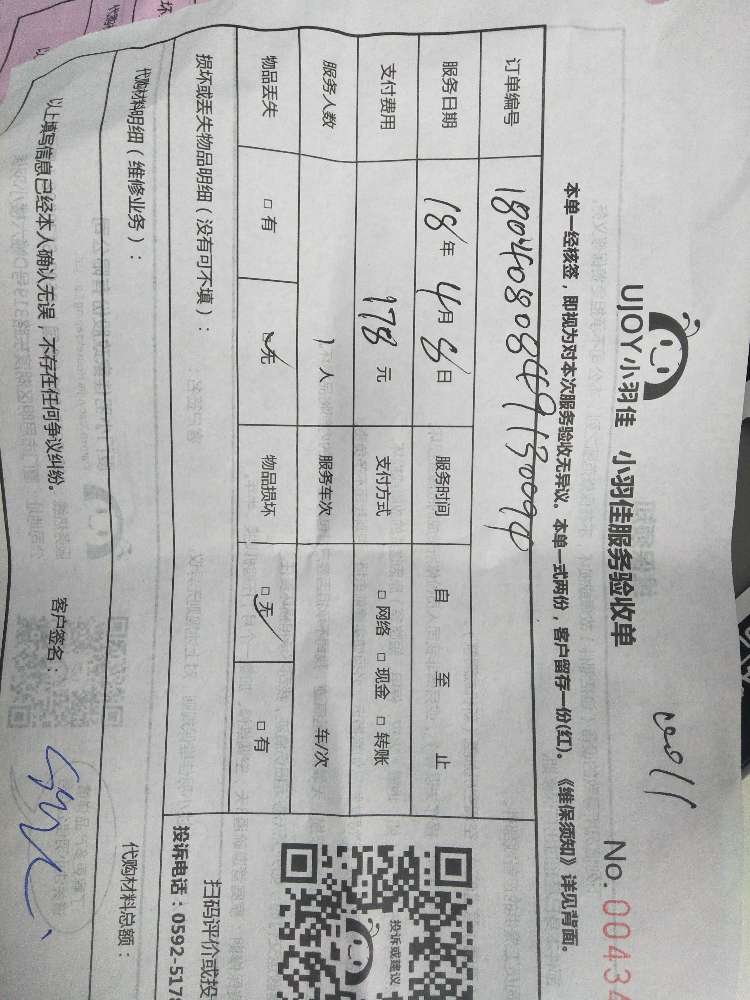 UJOY小羽佳 小羽佳服务验收单
No.00434
本单一经核签，即视为对本次服务验收无异议。本单一式两份，客户留存一份(红)。《维保须知》详见背面。
订单编号
服务日期 18年 4月 8日 服务时间 自 至 止
支付费用 178元 支付方式 □ 网络 □ 现金 □ 转账
服务人数 1人 服务车次 车/次
物品丢失 □ 有 □ 无 物品损坏 □ 无 □ 有
损坏或丢失物品明细（没有可不填）：
代购材料明细（维修业务）：
代购材料总额：
以上填写信息已经本人确认无误，不存在任何争议纠纷。 客户签名：
投诉或建议
扫码评价或投
投诉电话：0592-517